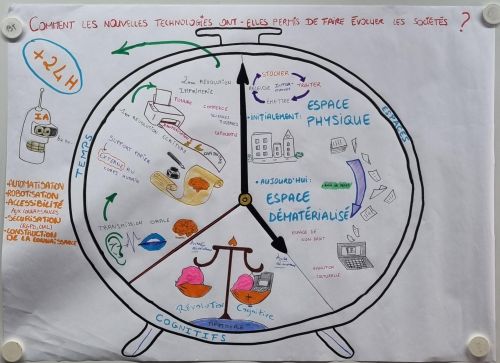 COMMENT LES NOUVELLES TECHNOLOGIES ONT-ELLES PERMIS DE FAIRE ÉVOLUER LES SOCIÉTÉS ?
+24H
IA
AUTOMATISATION
ROBOTISATION
ACCESSIBILITÉ
AUX CONNAISSANCES
SÉCURISATION
CONSTRUCTION
DE LA CONNAISSANCE
TEMPS
ESPACES
COGNITIFS
2ème RÉVOLUTION
IMPRIMERIE
1ère RÉVOLUTION ECRITURE
COMMERCE
SUPPORT
EXTERNE AU
CORPS HUMAIN
TRANSMISSION ORALE
STOCKER
TRAITER
ÉMETTRE
INITIALEMENT:
ESPACE
PHYSIQUE
AUJOURD'HUI:
ESPACE
DÉMATÉRIALISÉ
ESPACE DE
RÉVOLUTION
CULTURELLE
Révolution Cognitive
MÉMOIRE